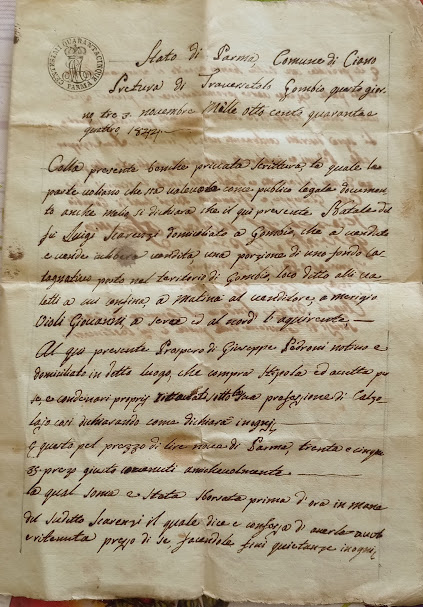 CENTESIMI QUARANTACINQUE
PARMA
Stato di Parma, Comune di Ciano
Pretura di Traversetolo Gombio questo gior
no tre 3. novembre Mille otto cento quaranta e
quattro 1844.
Colla presente benche privata scrittura, la quale le
parte vogliano che sia valevole come publico legale documen
to anche melio si dichiara che il qui presente Natale del
fu Luigi Scarenzi domiciliato a Gombio, che a venduto
e vende in libera vendita una porzione di un fondo ca
stagnativo posto nel territorio di Gombio, loco ditto alli
a cui confina, a matina al vanditore, a merigio
Violi Giovanni, a sera ed al nord l'aquirente,
Al qui presente Prospero di Giuseppe Pedroni nativo e
domiciliato in detto luogo, che compra stipola ed acetta per
se, e con denari proprj sua profesione di Calzo
lajo così dichiarando come dichiara in ogni,
E questo pel prezzo di lire nove di Parma, trenta e cinque
35 prezo giusto convenuti amichevolmente
la qual soma e stata sborsata prima di ora in mane
del sudetto Scarenzi il quale dice e confessa di averla auta
e ritenuta prezzo di se facendole fini quietanze in ogni,